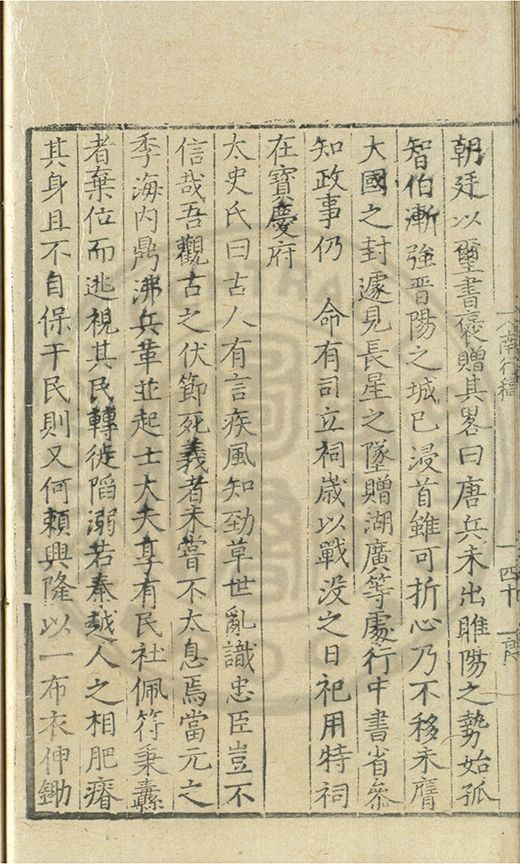 朝廷以璽書褒贈其畧曰唐兵未出睢陽之勢始孤
智伯漸強晋陽之城已浸首雖可折心乃不移未膺
大國之封遽見長星之墜贈湖廣等處行中書省叅
知政事仍　命有司立祠歲以戰没之日祀用特祠
在寳慶府
太史氏曰古人有言疾風知勁草世亂識忠臣豈不
信哉吾觀古之伏節死義者未嘗不太息焉當元之
季海内鼎沸兵革並起士大夫享有民社佩符秉纛
者棄位而逃視其民轉徙陷溺若秦越人之相肥瘠
其身且不自保干民則又何頼興隆以一布衣伸鋤